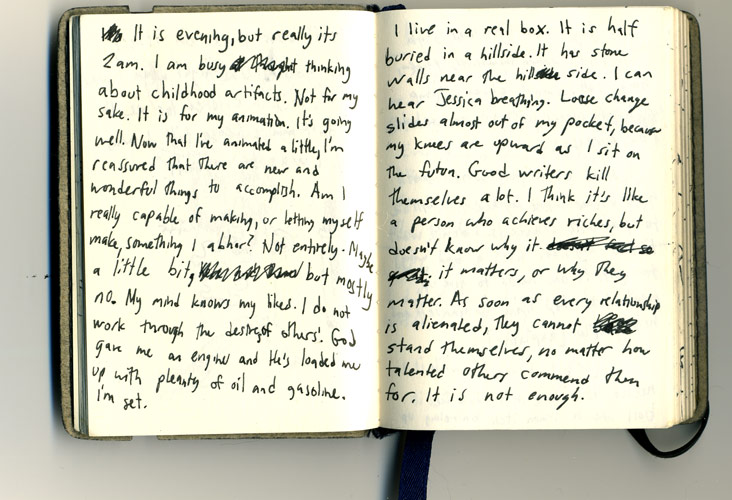 It is evening, but really its
2am. I am busy thinking
about childhood artifacts. Not for my
sake. It is for my animation. It's going
well. Now that I've animated a little, I'm
reassured that there are new and
wonderful things to accomplish. Am I
really capable of making, or letting myself
make, something I abhor? Not entirely. Maybe
a little bit, but mostly
no. My mind knows my likes. I do not
work through the desires of others'. God
gave me an engine and He's loaded me
up with pleanty of oil and gasoline.
I'm set.
I live in a real box. It is half
buried in a hillside. It has stone
walls near the hill side. I can
hear Jessica breathing. Loose change
slides almost out of my pocket, because
my knees are upward as I sit on
the futon. Good writers kill
themselves a lot. I think it's like
a person who achieves riches, but
doesn't know why it
it matters, or why they
matter. As soon as every relationship
is alienated, they cannot
stand themselves, no matter how
talented others commend them
for. It is not enough.